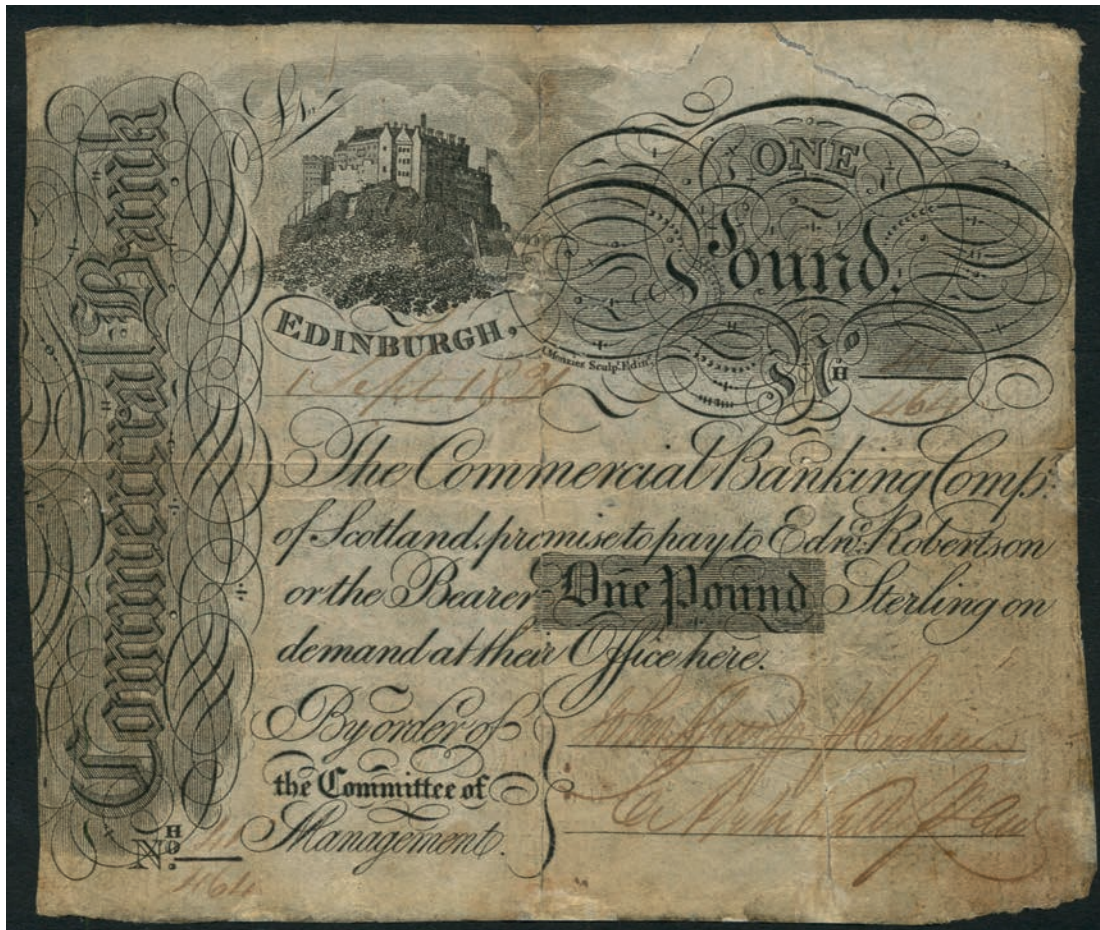 Commercial Bank
ONE
Pound.
EDINBURGH,
Menzies Sculpt. Edinr.
No. H
1 Sept 18
464
The Commercial Banking Compy.
of Scotland, promise to pay to Edwd. Robertson
or the Bearer One Pound Sterling on
demand at their Office here.
By order of
the Committee of
Management.
No. H
464